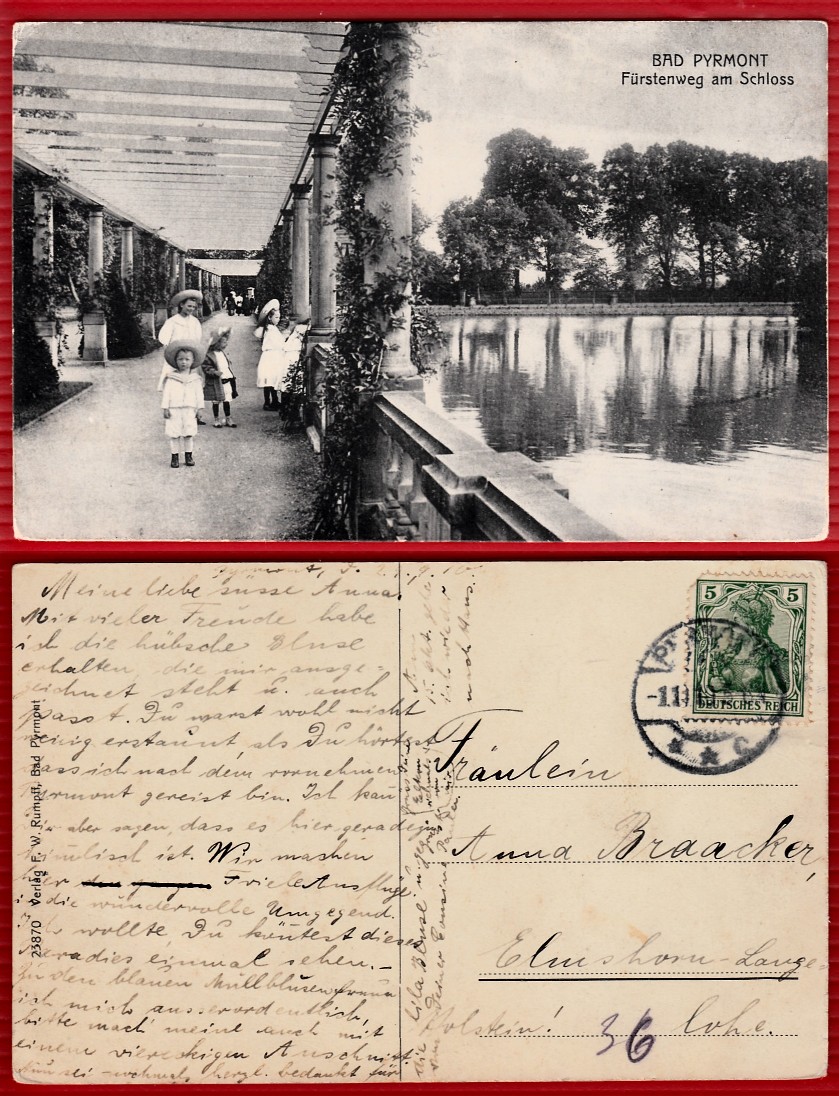 BAD PYRMONT
Fürstenweg am Schloss
Pyrmont,
Meine liebe süsse Anna.
Mit vieler Freude habe
ich die hübsche Bluse
erhalten, die mir ausge=
zeichnet steht u. auch
passt. Du warst wohl nicht
wenig erstaunt als Du hörtest
dass ich nach dem vornehmen
Pyrmont gereist bin. Ich kan
Dir aber sagen, dass es hier geradezu
himmlisch ist. Wir machen
hier viele Ausflüge
in die wundervolle Umgegend.
Ich wollte Du köntest dieses
Paradies einmal sehen. –
Zu den blauen Müllblusen freue
ich mich ausserordentlich,
bitte mach' meine auch mit
einem viereckigen Anschnitt
Nun sei nochmals herzl. bedankt für
die lila Bluse u. gegrüsst
von Deiner Cousine
Am
15. Okt.
ich wieder
nach Haus.
23870 Verlag F. W. Rumpff, Bad Pyrmont
5 5
DEUTSCHES REICH
1.10
* * c
Fräulein
Anna Braacker,
Elmshorn-Lange=
Holstein! lohe.
36